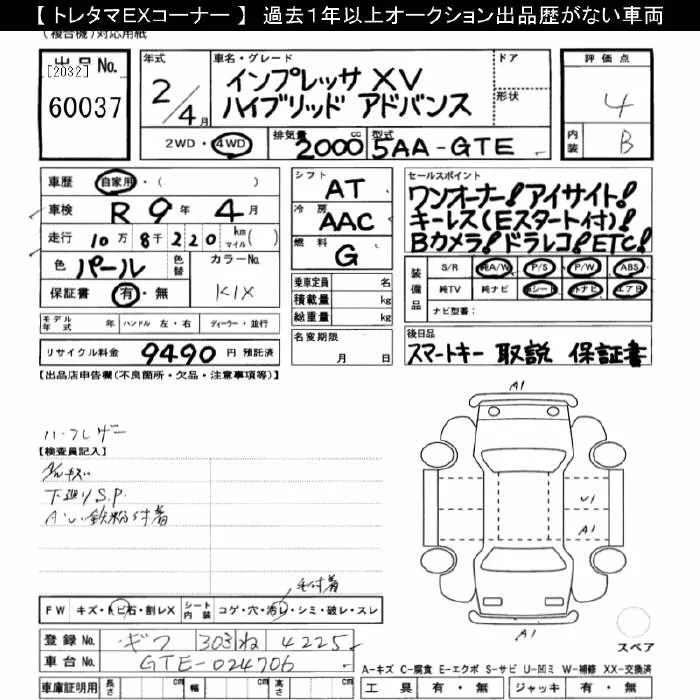 【トレタマEXコーナー】 過去1年以上オークション出品歴がない車両
(複合機)対応用紙
出品No.
[2032]
60037
年式
2/4月
車名・グレード
インプレッサ XV
ハイブリッド アドバンス
ドア
形状
評価点
4
内装
B
2WD・4WD
排気量
2000cc
型式
5AA-GTE
車歴
自家用・( )
車検
R 9年 4月
走行
10万8千220 km マイル( )
色
パール
色替
カラーNo.
K1X
保証書
有・無
シフト
AT
冷房
AAC
燃料
G
乗車定員 名
積載量 kg
総重量 kg
名変期限
月 日
セールスポイント
ワンオーナー!アイサイト!
キーレス(Eスタート付)!
Bカメラ!ドラレコ!ETC!
装備品
S/R 純A/W P/S P/W ABS
純TV 純ナビ 革シート 外ナビ エアB
ナビ型番:
モデル年式 年 ハンドル 左・右 ディーラー・並行
リサイクル料金 9490円 預託済
後日品
スマートキー 取説 保証書
【出品店申告欄(不良箇所・欠品・注意事項等)】
ハーフレザー
【検査員記入】
下廻りS.P.
鉄粉付着
毛付着
FW キズ・トビ石・割レX
シート内装 コゲ・穴・汚レ・シミ・破レ・スレ
登録No. ギフ 303 ね 4225
車台No. GTE-024706
車庫証明用 長さ cm 幅 cm 高さ cm
A1
U1
A1
A1
スペア
A-キズ C-腐食 E-エクボ S-サビ U-凹ミ W-補修 XX-交換済
工具 有・無 ジャッキ 有・無